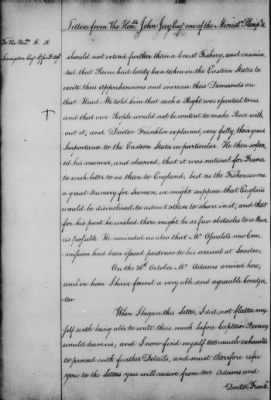 Letters from The Honble John Jay Esqr one of the Minist. Plenip &c
To The Honble R. R.
Livingston Esqr
should not extend further than a Coast Fishery, and insinua-
ted that Pains had lately been taken in the Eastern States to
excite their apprehensions and increase their Demands on
that Head. We told him that such a Right was essential to us,
and that our People would not be content to make Peace with
out it, and Doctor Franklin explained very fully their great
Importance to the Eastern States in particular. He then soften-
ed his manner, and observed, that it was natural for France
to wish better to us than to England; but as the Fisheries were
a great Nursery for Seamen, we might suppose that England
would be disinclined to admit others to share in it, and that
for his part he wished there might be as few obstacles to a Peace
as possible. He reminded us also that Mr Oswalds new Com-
mission had been issued posterior to his arrival at London.
On the 26th October Mr Adams arrived here,
and in him I have found a very able and agreable Coadju-
tor.
When I began this Letter, I did not flatter my-
self with being able to write this much before Captain Barney
would leave us; and I now find myself too much exhausted
to proceed with further Details, and must therefore refer
you to the Letters you will receive from Mr Adams and
Doctor Frank